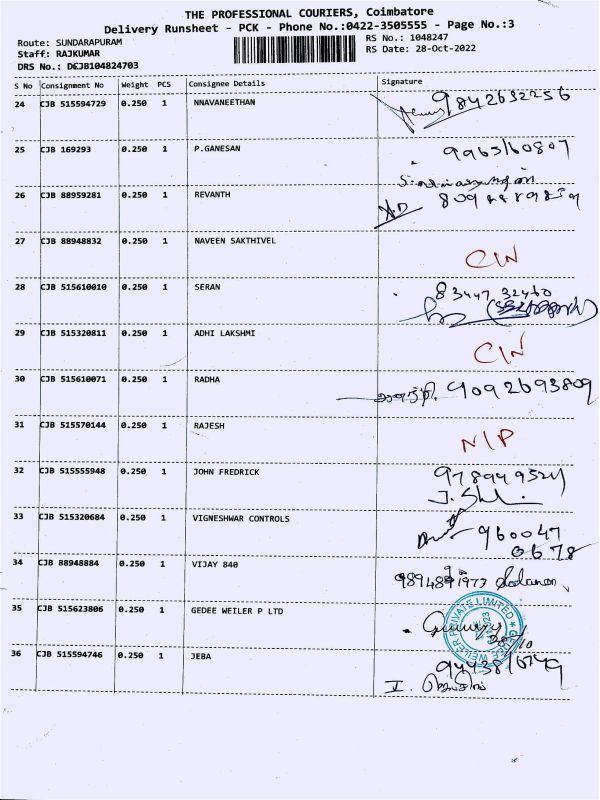 THE PROFESSIONAL COURIERS, Coimbatore
Delivery Runsheet - PCK - Phone No.:0422-3505555 - Page No.:3
Route: SUNDARAPURAM RS No.: 1048247
Staff: RAJKUMAR RS Date: 28-Oct-2022
DRS No.: DCJB104824703
S No Consignment No Weight PCS Consignee Details Signature
24 CJB 515594729 0.250 1 NNAVANEETHAN 9842632256
25 CJB 169293 0.250 1 P.GANESAN 9963160807
26 CJB 88959281 0.250 1 REVANTH
27 CJB 88948832 0.250 1 NAVEEN SAKTHIVEL C/N
28 CJB 515610010 0.250 1 SERAN 83447 32460
29 CJB 515320811 0.250 1 ADHI LAKSHMI C/N
30 CJB 515610071 0.250 1 RADHA 9092693809
31 CJB 515570144 0.250 1 RAJESH N/P
32 CJB 515555948 0.250 1 JOHN FREDRICK
33 CJB 515320684 0.250 1 VIGNESHWAR CONTROLS 960047
0678
34 CJB 88948884 0.250 1 VIJAY 840
35 CJB 515623806 0.250 1 GEDEE WEILER P LTD GEDEE WEILER PRIVATE LIMITED
28/10
36 CJB 515594746 0.250 1 JEBA